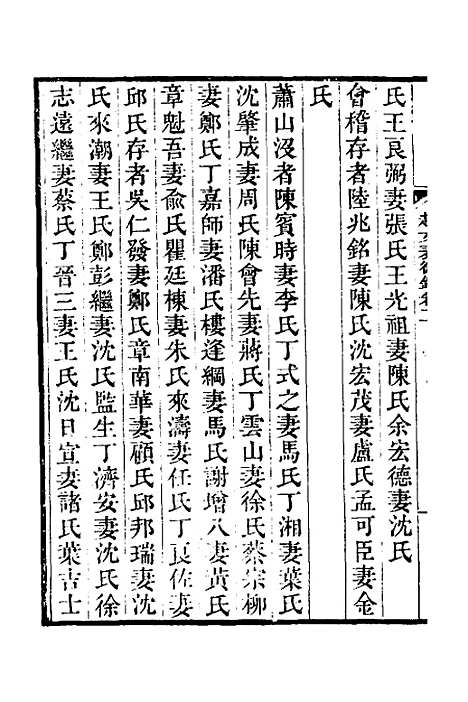 氏王良弼妻張氏王光祖妻陳氏余宏德妻沈氏
會稽存者陸兆銘妻陳氏沈宏茂妻盧氏孟可臣妻金
氏
蕭山沒者陳賓時妻李氏丁式之妻馬氏丁湘妻葉氏
沈肇成妻周氏陳會先妻蔣氏丁雲山妻徐氏蔡宗柳
妻鄭氏丁嘉師妻潘氏樓逢綱妻馬氏謝增八妻黃氏
章魁吾妻俞氏瞿廷棟妻朱氏來濤妻任氏丁良佐妻
邱氏存者吳仁發妻鄭氏章南華妻顧氏邱邦瑞妻沈
氏來潮妻王氏鄭彭繼妻沈氏監生丁濟安妻沈氏徐
志遠繼妻蔡氏丁晉三妻王氏沈日宣妻諸氏葉吉士